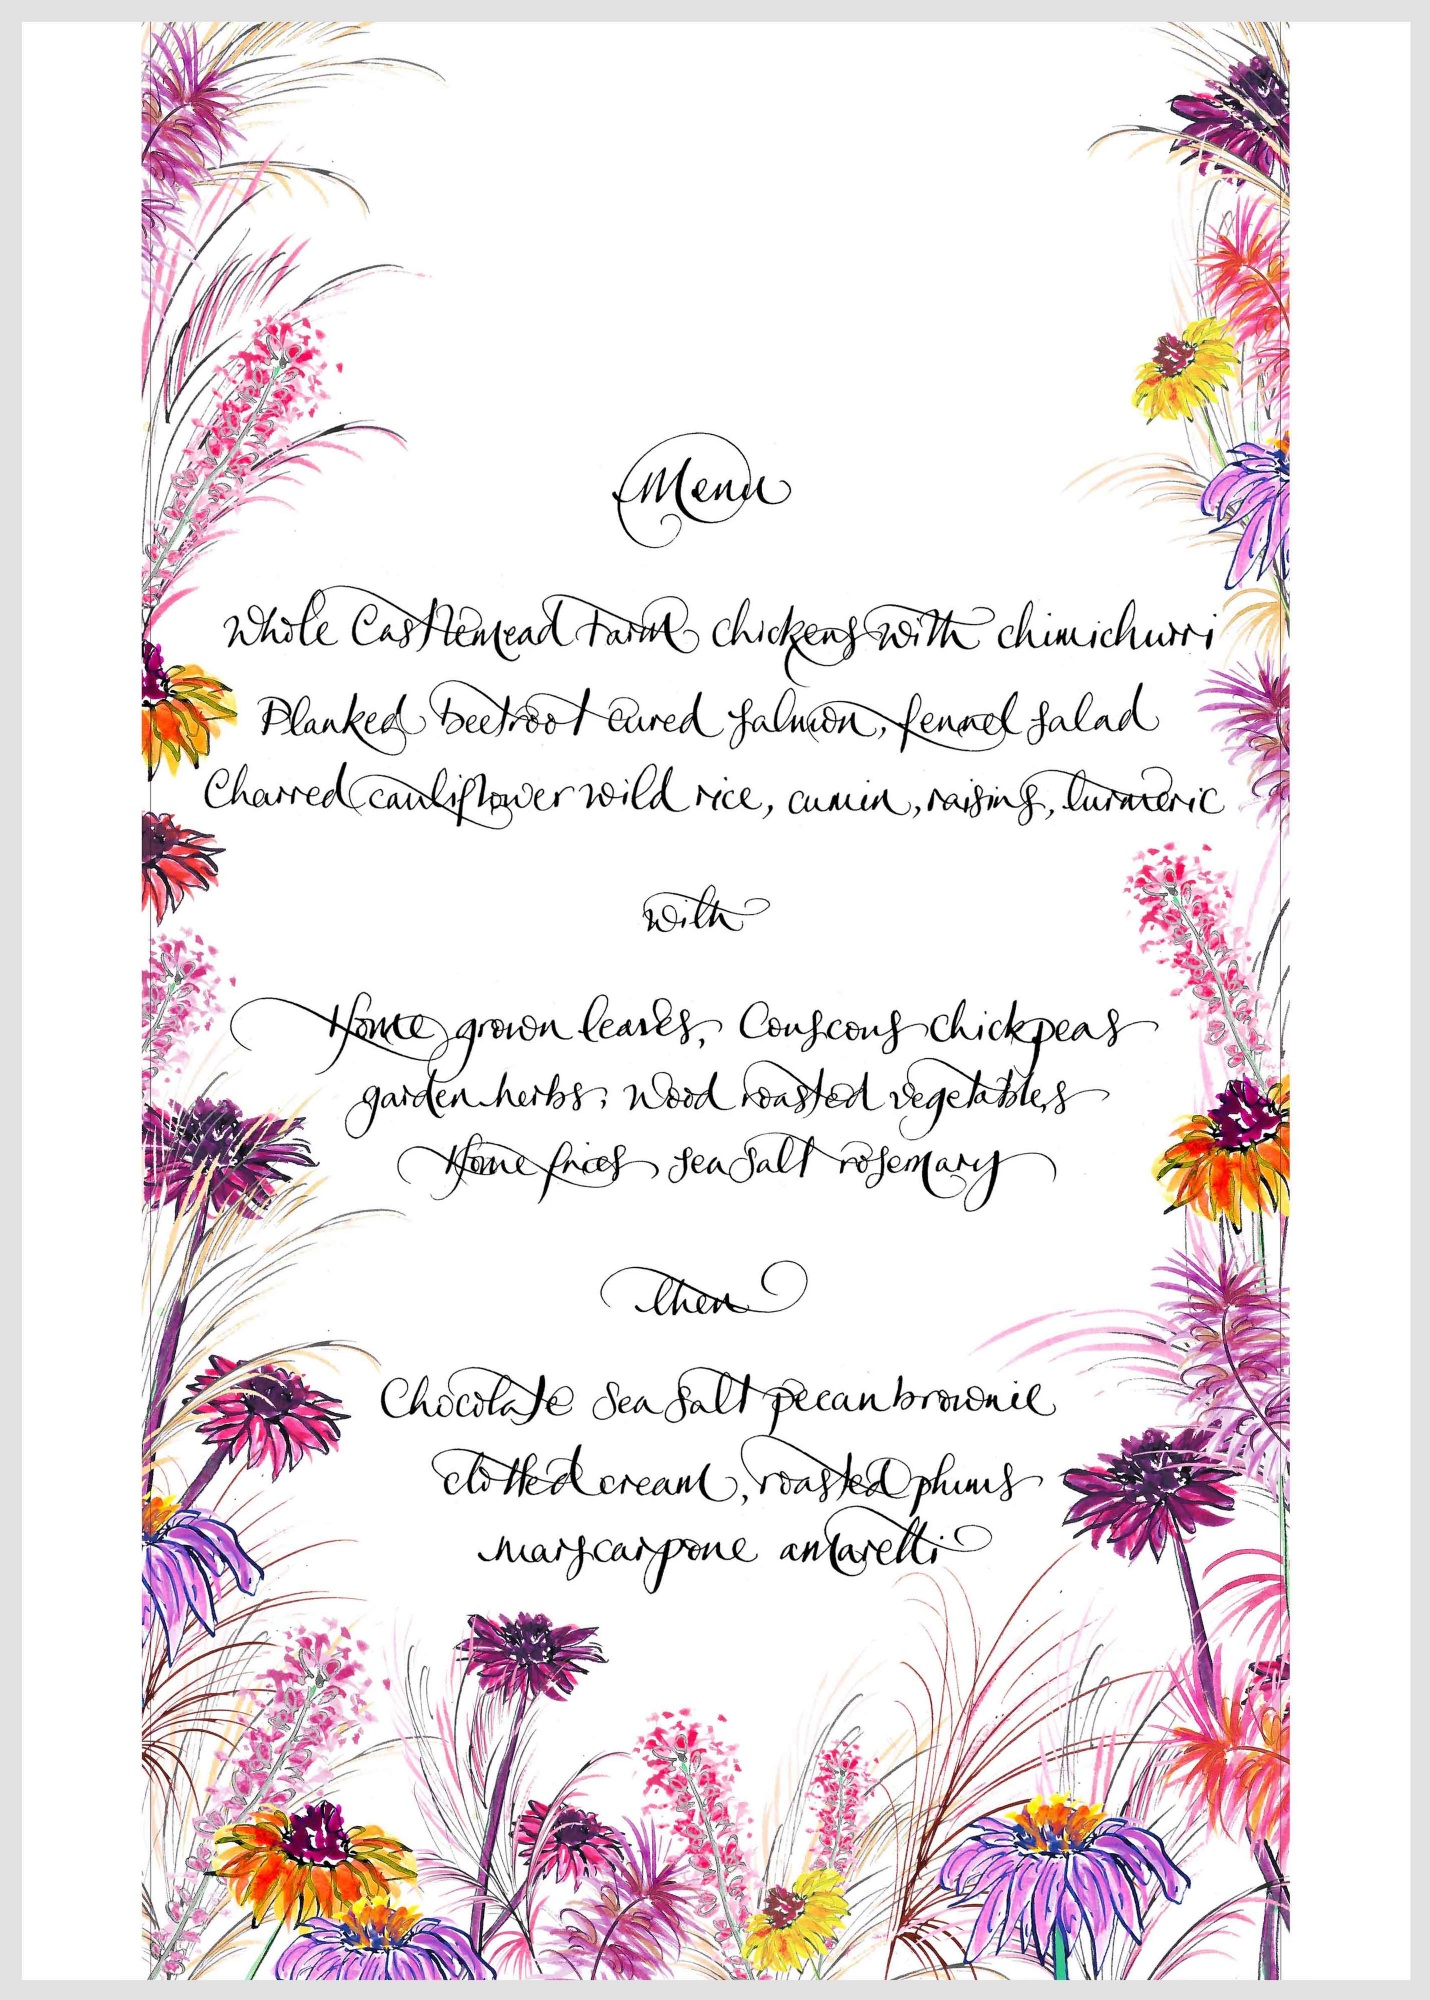 Menu
Whole Castlemead Farm chickens with chimichurri
Planked beetroot cured salmon, fennel salad
Charred cauliflower wild rice, cumin, raisins, turmeric
with
Home grown leaves, Couscous chickpeas
garden herbs; Wood roasted vegetables
Home fries sea salt rosemary
then
Chocolate sea salt pecan brownie
clotted cream, roasted plums
marscarpone amaretti